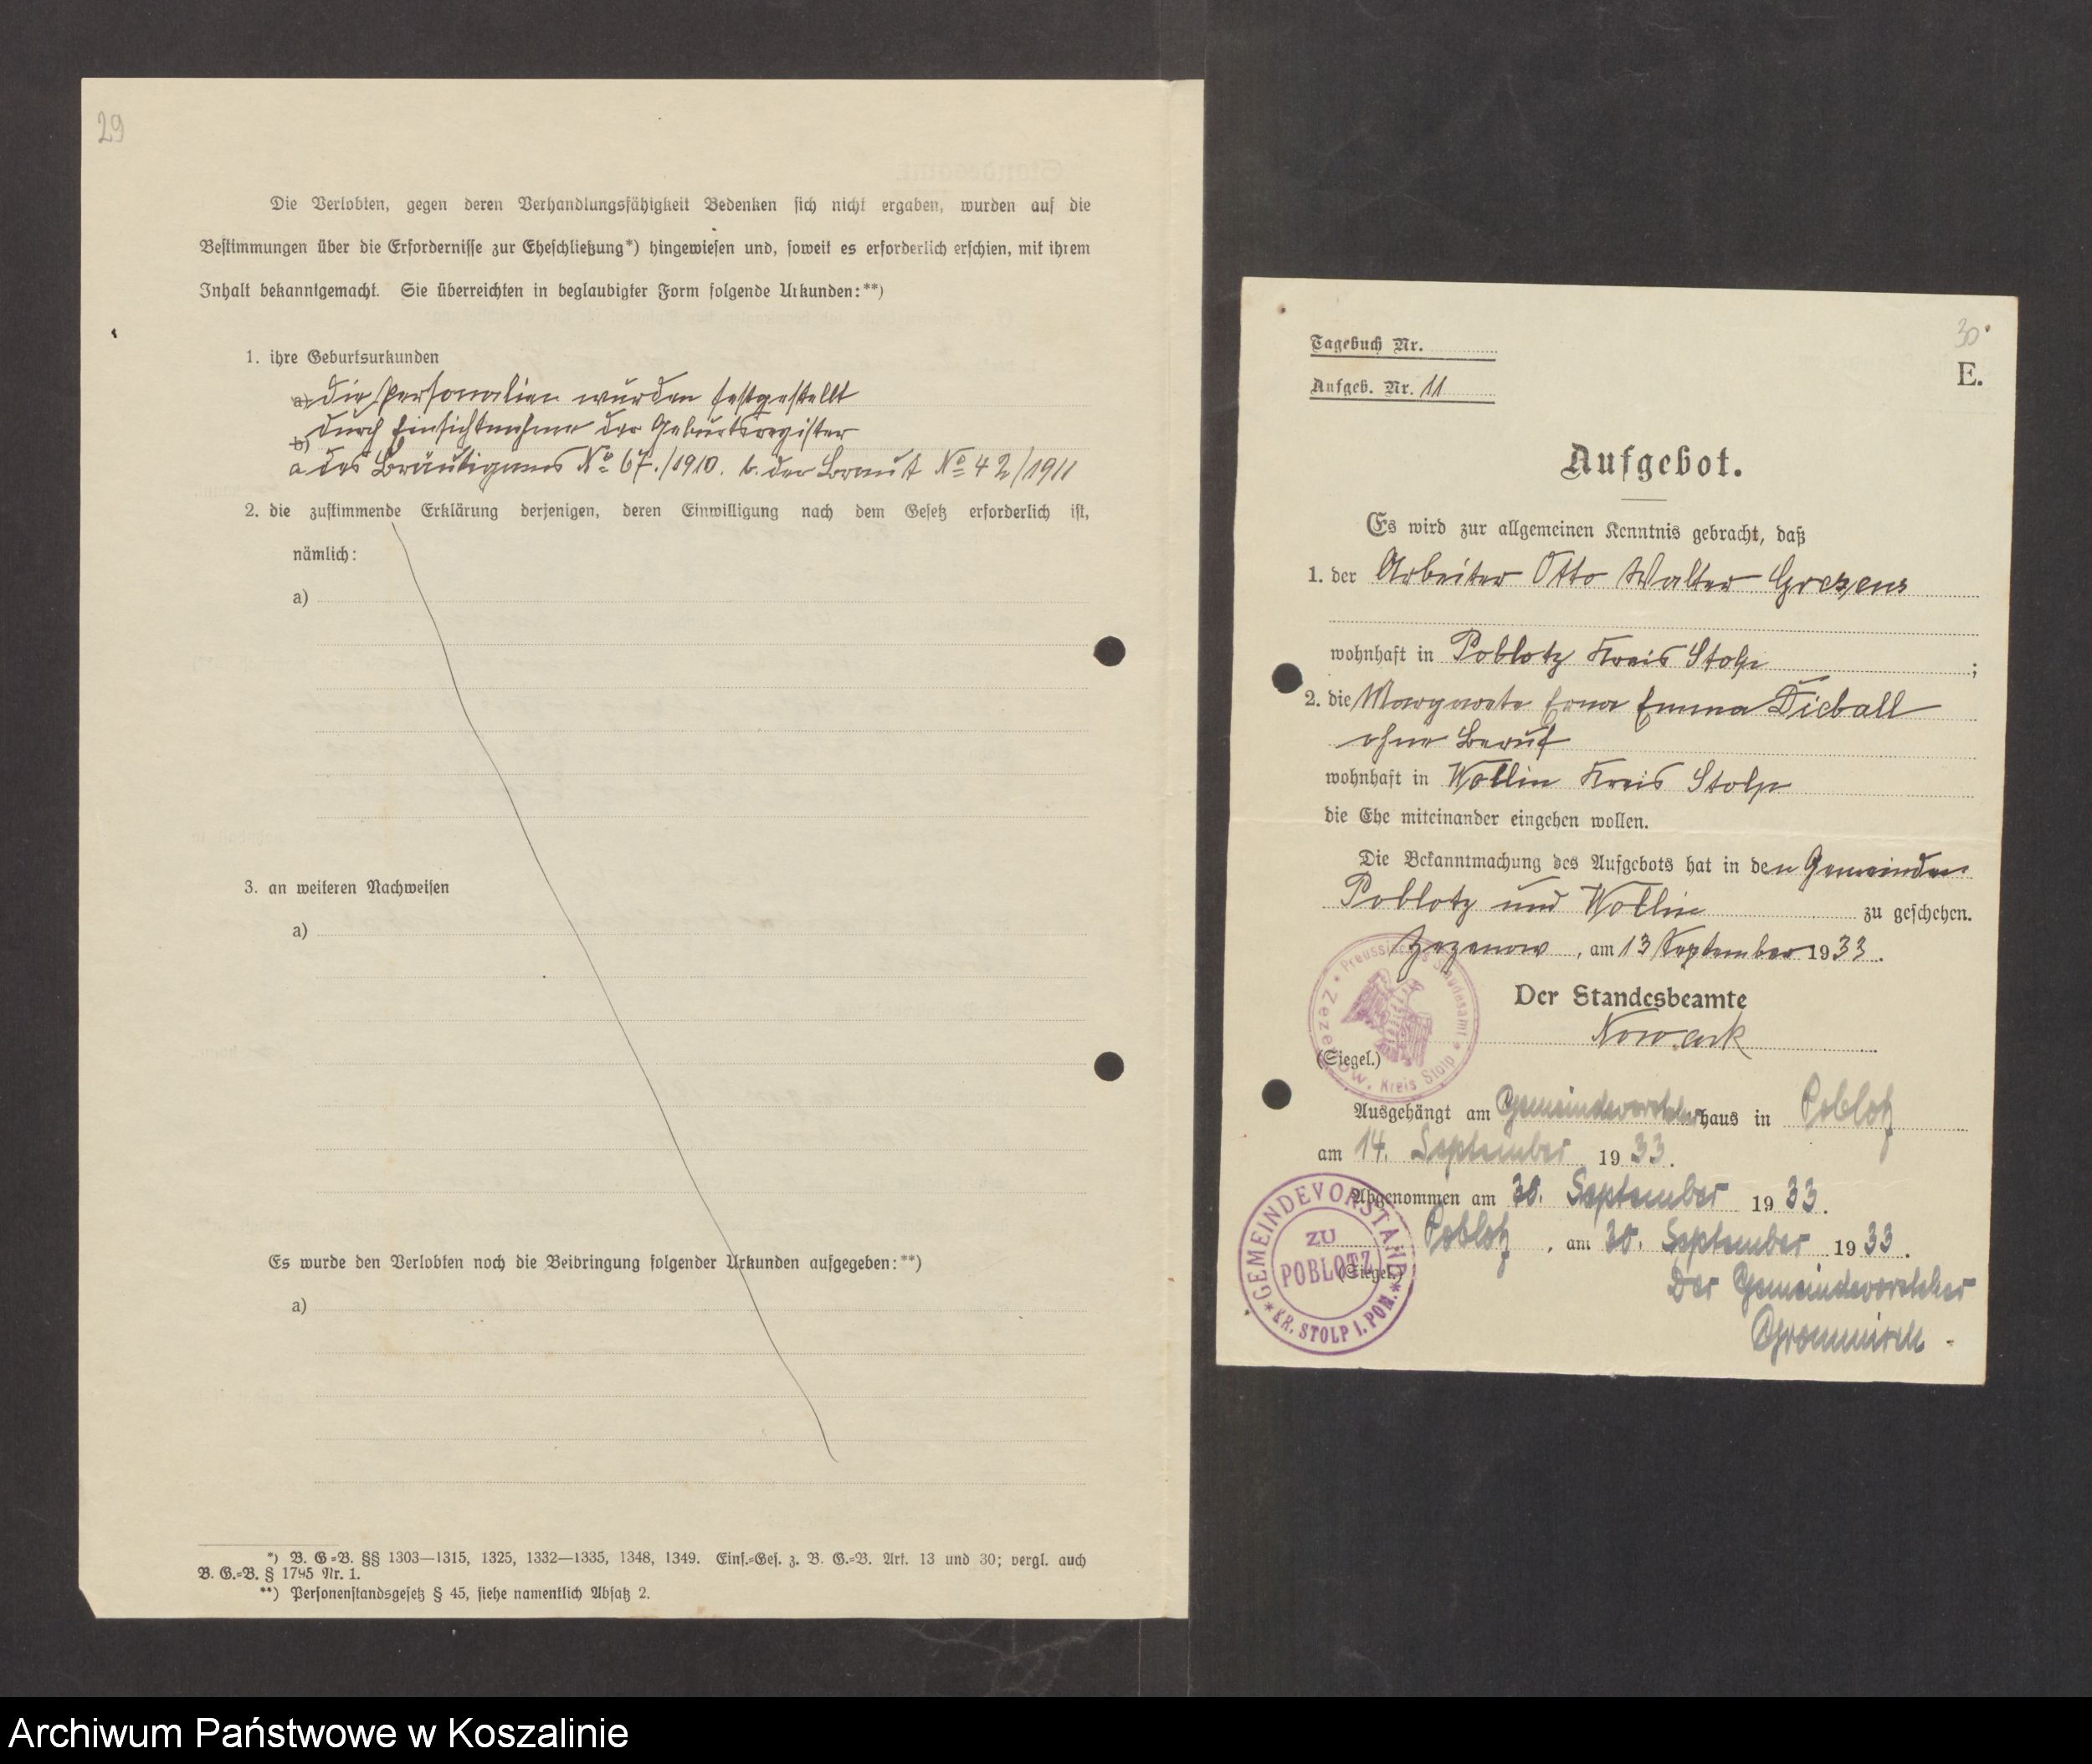 29
Die Verlobten, gegen deren Verhandlungsfähigkeit Bedenken sich nicht ergaben, wurden auf die
Bestimmungen über die Erfordernisse zur Eheschließung*) hingewiesen und, soweit es erforderlich erschien, mit ihrem
Inhalt bekanntgemacht. Sie überreichten in beglaubigter Form folgende Urkunden:**)
1. ihre Geburtsurkunden
a) die Personalien wurden festgestellt
b) durch Einsichtnahme der Geburtsregister
a des Bräutigams No 67./1910. b. der Braut No 42/1911
2. die zustimmende Erklärung derjenigen, deren Einwilligung nach dem Gesetz erforderlich ist,
nämlich:
a)
3. an weiteren Nachweisen
a)
Es wurde den Verlobten noch die Beibringung folgender Urkunden aufgegeben:**)
a)
*) B. G.=B. §§ 1303—1315, 1325, 1332—1335, 1348, 1349. Einf.=Ges. z. B. G.=B. Art. 13 und 30; vergl. auch
B. G.=B. § 1795 Nr. 1.
**) Personenstandsgesetz § 45, siehe namentlich Absatz 2.
30
Tagebuch Nr.
E.
Aufgeb. Nr. 11
Aufgebot.
Es wird zur allgemeinen Kenntnis gebracht, daß
1. der Arbeiter Otto Walter
wohnhaft in Poblotz Kreis Stolp ;
2. die Margarete Erna Emma Dieball
ohne Beruf
wohnhaft in Wollin Kreis Stolp
die Ehe miteinander eingehen wollen.
Die Bekanntmachung des Aufgebots hat in den Gemeinden
Poblotz und Wollin zu geschehen.
Zezenow, am 13 September 1933.
Der Standesbeamte
Nowack
(Siegel.)
Preussisches Standesamt
Zezenow, Kreis Stolp
Ausgehängt am Gemeindevorsteherhaus in Poblotz
am 14. September 1933.
Abgenommen am 30. September 1933.
Poblotz, am 30. September 1933.
(Siegel.)
GEMEINDEVORSTAND
ZU
POBLOTZ
KR. STOLP I. POM.
Der Gemeindevorsteher
Archiwum Państwowe w Koszalinie